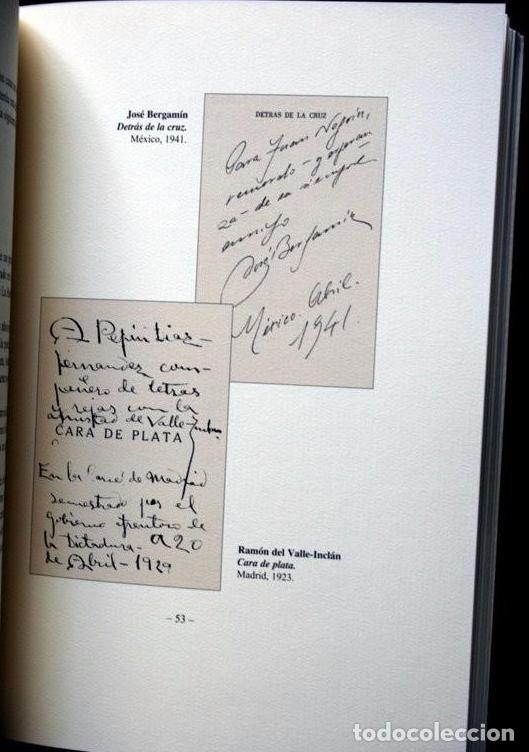 José Bergamín
Detrás de la cruz.
México, 1941.
DETRAS DE LA CRUZ
Para Juan Negrín,
recuerdo-y esperan
za-de su siempre
amigo
José Bergamín
México. Abril.
1941.
A Pepín Díaz-
fernandez com-
pañero de letras
y rejas con la
amistad de Valle-Inclan
CARA DE PLATA
En la Carcel de Madrid
secuestrado por el
gobierno de
la Dictadura- a 20
de Abril-1929
Ramón del Valle-Inclán
Cara de plata.
Madrid, 1923.
– 53 –
todocoleccion